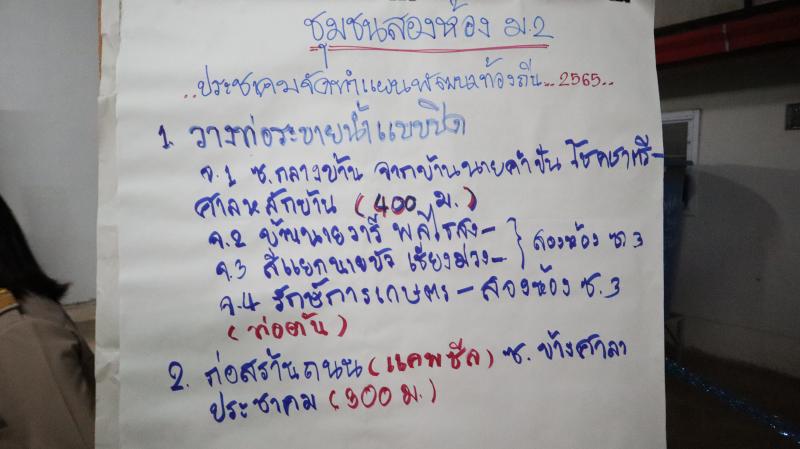 ชุมชนสองห้อง ม.2
..ประชาคมจัดทำแผนพัฒนาท้องถิ่น...2565..
1. วางท่อระบายน้ำแบบปิด
จ.1 ซ.กลางบ้าน จากบ้านนายคำปัน โชคชาตรี-
ศาลหลักบ้าน (400 ม.)
จ.2 บ้านนายวารี พลไธสง-
จ.3 สี่แยกนายบัว เชียงม่วง- } สองห้อง ซ.3
จ.4 รักษ์การเกษตร - สองห้อง ซ.3
(ท่อตัน)
2. ก่อสร้างถนน (แคพซีล) ซ.ข้างศาลา
ประชาคม (300 ม.)